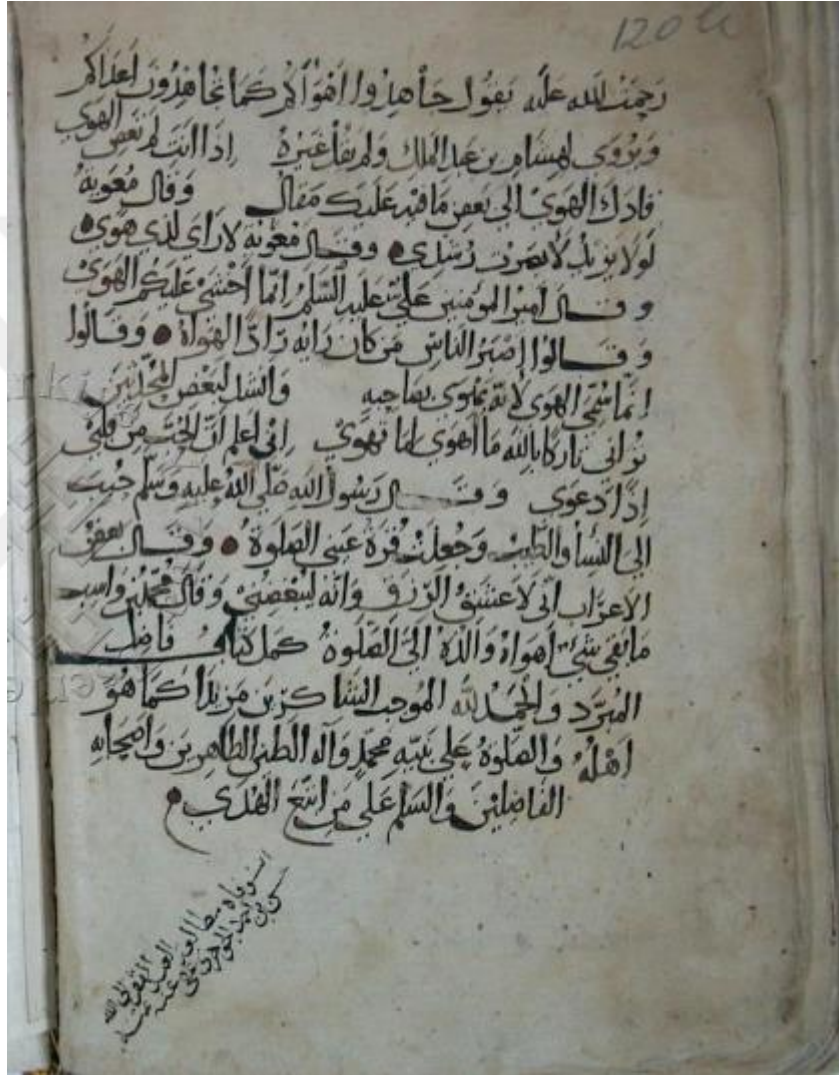 120
رحمت الله عليه يقول جاهدوا اهواكم كما تجاهدون اعداكم
ويروى لهشام بن عبد الملك ولم يقل غيره اذا انت لم تعص الهوى
قادك الهوى الى بعض ما فيه عليك مقال وقال معوية
لولا يزيد لابصرت رشدي وقال معوية لا راي لذي هوى
وقال امير المومنين علي عليه السلم انما اخشى عليكم الهوى
وقالوا إصبر الناس من كان رايه رادا لهواه وقالوا
انما سمي الهوى لانه يهوى بصاحبه وانشد لبعض المحدثين
تراني تاركا بالله ما اهوى لما تهوى اني اعلم ان الحب من قلبي
إذا دعوى وقال رسول الله صلى الله عليه وسلم حبب
الي النسا والطيب وجعلت قرة عيني الصلوة وقال بعض
الاعراب اني لاعشق الرزق وانه ليبغضني وقال محمد بن واسع
ما بقي شيء اهواه والذه الي الصلوة كمل كتاب فاضل
المبرد والحمد لله الموجب الشاكرين مزيدا كما هو
اهله والصلوة على نبيه محمد وآله الطاهرين واصحابه
الفاضلين والسلم على من اتبع الهدى